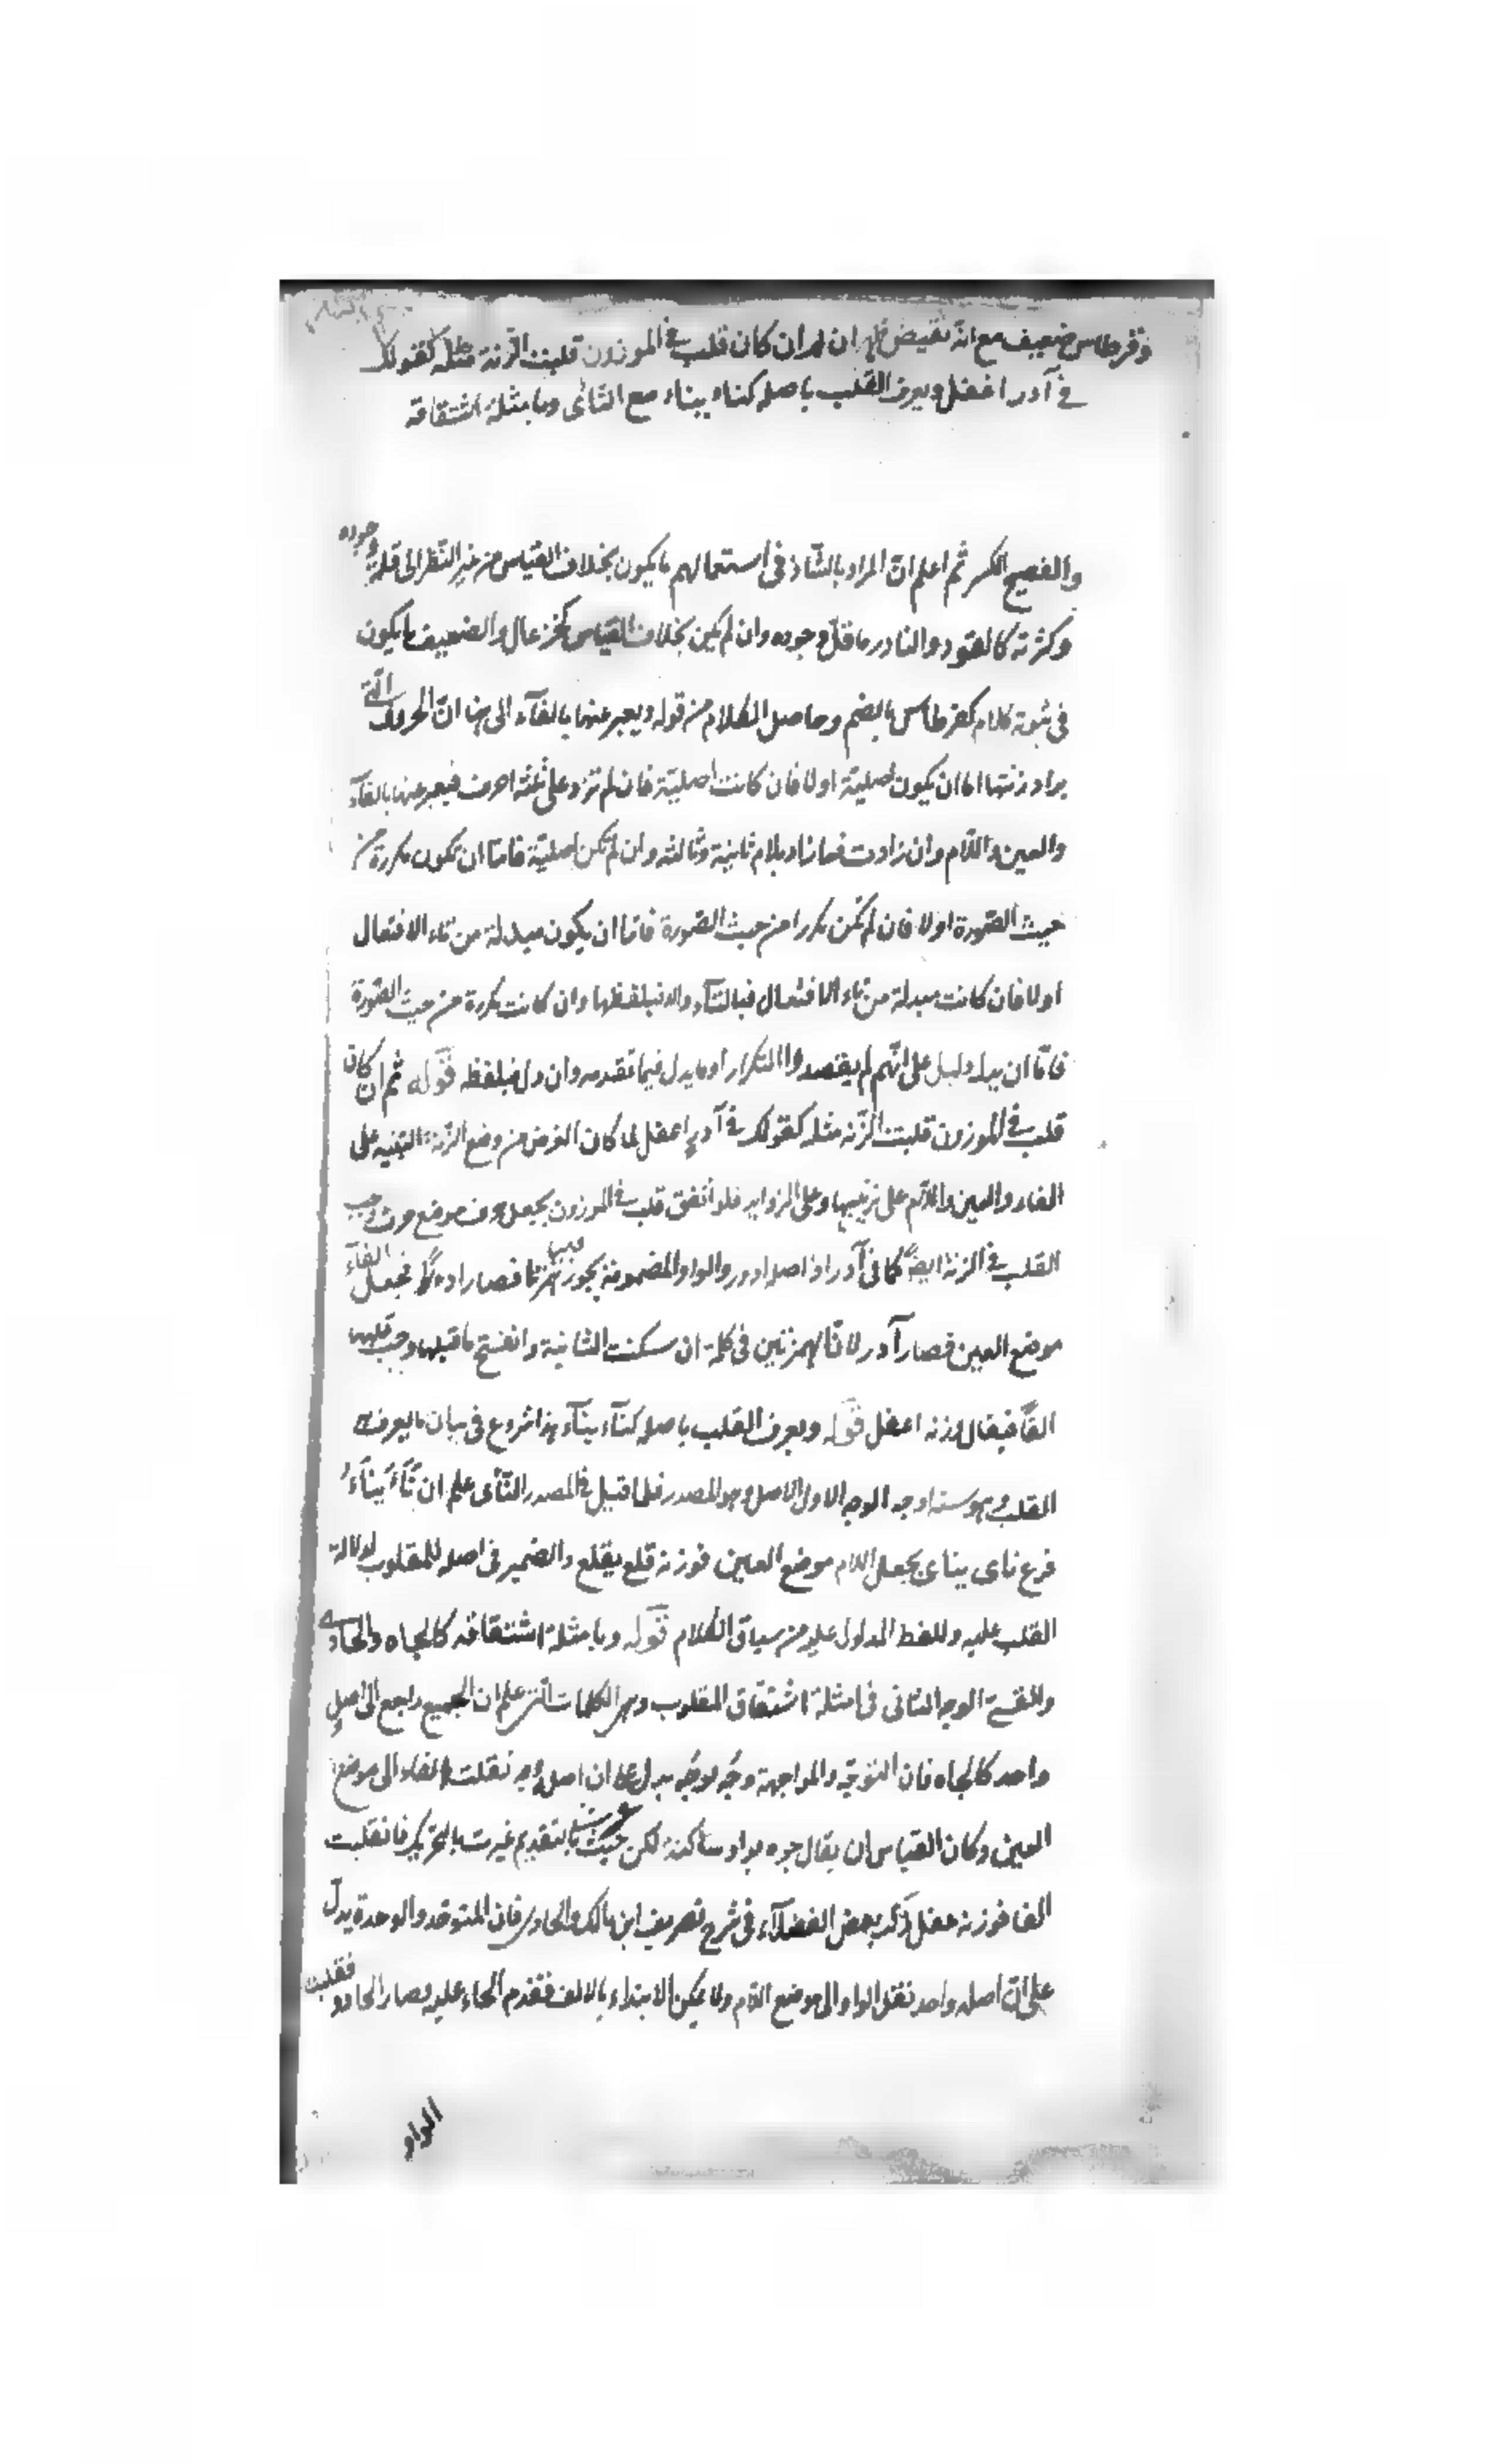 وقرطاس ضعيف مع انه نقيض ظهران ثم ان كان قلب فى الموزون قلبت الزنة مثله كقولك
فى آدر اعفل ويعرف القلب باصله كناء يناء مع النأى وبامثلة اشتقاقه
والفصيح الكسر ثم اعلم ان المراد بالشاذ فى استعمالهم ما يكون بخلاف القياس من غير النظر الى قلة وجوده
وكثرته كالقود والنادر ما قل وجوده وان لم يكن بخلاف القياس كخزعال والضعيف ما يكون
فى ثبوته كلام كقرطاس بالضم وحاصل الكلام من قوله ويعبر عنها بالفآء الى هنا ان الحروف التى
يراد زنتها اما ان يكون اصلية اولا فان كانت اصلية فان لم تزد على ثلثة احرف فيعبر عنها بالفآء
والعين واللام وان زادت فما زاد بلام ثانية وثالثه وان لم تكن اصلية فاما ان تكون مكررة من
حيث الصورة اولا فان لم تكن مكررا من حيث الصورة فاما ان يكون مبدلة من تاء الافتعال
اولا فان كانت مبدلة من تاء الافتعال فبالتآء والا فبلفظها وان كانت مكررة من حيث الصورة
فامّا ان يدل دليل على انهم لم يقصدوا التكرار او ما يدل فبما تقدمه وان دل فبلفظه قوله ثم ان كان
قلب فى الموزون قلبت الزنه مثله كقولك فى آدر اعفل لما كان الغرض من وضع الزنة التنبيه على
الفاء والعين واللام على ترتيبها وعلى الزوايد فلو اتفق قلب فى الموزون بجعل حرف موضع حرف وجب
القلب فى الزنة ايضا كما فى آدر اذ اصله ادور والواو المضمومة يجوز قلبها همزة فصار ادءر فجعل الفآء
موضع العين فصار آدر لان الهمزتين فى كلمة ان سكنت الثانية وانفتح ما قبلها وجب قلبها
الفا فيقال وزنه اعفل قوله ويعرف القلب باصله كنآء ينآء هذا شروع فى بيان ما يعرف به
القلب وهو ستة اوجه الوجه الاول الاصل وهو المصدر فلما قيل فى المصدر النأى علم ان نآء ينآء
فرع ناى يناى بجعل اللام موضع العين فوزنه فلع يفلع والضمير فى اصله للمقلوب لدلالة
القلب عليه وللفظ المدلول عليه من سياق الكلام قوله وبامثلة اشتقاقه كالجاه والحادى
والقسى الوجه الثانى فى امثلة اشتقاق المقلوب وهى الكلمات التى علم ان الجميع راجع الى اصل
واحد كالجاه فان التوجه والمواجهة وجّه يوجّه يدل على ان اصله وجه نقلت الفاء الى موضع
العين وكان القياس ان يقال جوه بواو ساكنة لكن حيث غيرت بالتقديم غيرت بالتحريك فانقلبت
الفا فوزنه عفل ذكر بعض الفضلآء فى شرح تصريف ابن مالك والحادى فان التوحد والوحدة يدل
على ان اصله واحد نقل الواو الى موضع اللام ولا يمكن الابتداء بالالف فقدم الحاء عليه وصار الحادو فقلبت
الواو